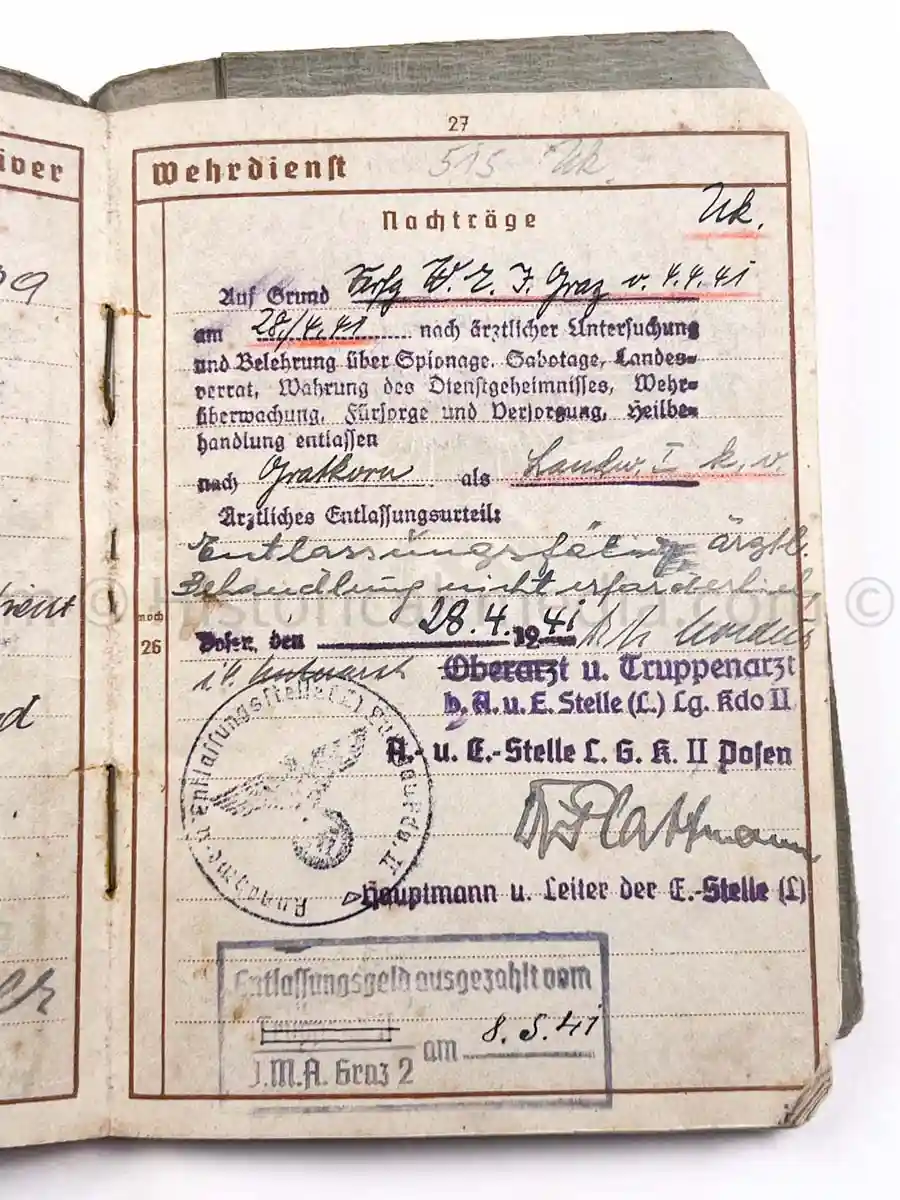 27
iver
Wehrdienst
515 Uk.
Nachträge
Uk.
Auf Grund Verfg W. E. I. Graz v. 4.4.41
am 28/4.41 nach ärztlicher Untersuchung
und Belehrung über Spionage, Sabotage, Landes=
verrat, Wahrung des Dienstgeheimnisses, Wehr=
überwachung, Fürsorge und Versorgung, Heilbe=
handlung entlassen
nach Gratkorn als Landw. I k.v.
Ärztliches Entlassungsurteil:
Entlassungsfähig ärztl.
Behandlung nicht erforderlich
© HistoricalMedia.com ©
noch
26
Posen, den 28.4. 1941
i.V.
Oberarzt u. Truppenarzt
b. A. u. E. Stelle (L.) Lg. Kdo II
A.- u. E.-Stelle L. G. K. II Posen
Annahme- u. Entlassungsstelle (L)
Plattmann
Hauptmann u. Leiter der E.-Stelle (L)
Entlassungsgeld ausgezahlt vom
am 8.5.41
W.M.A. Graz 2